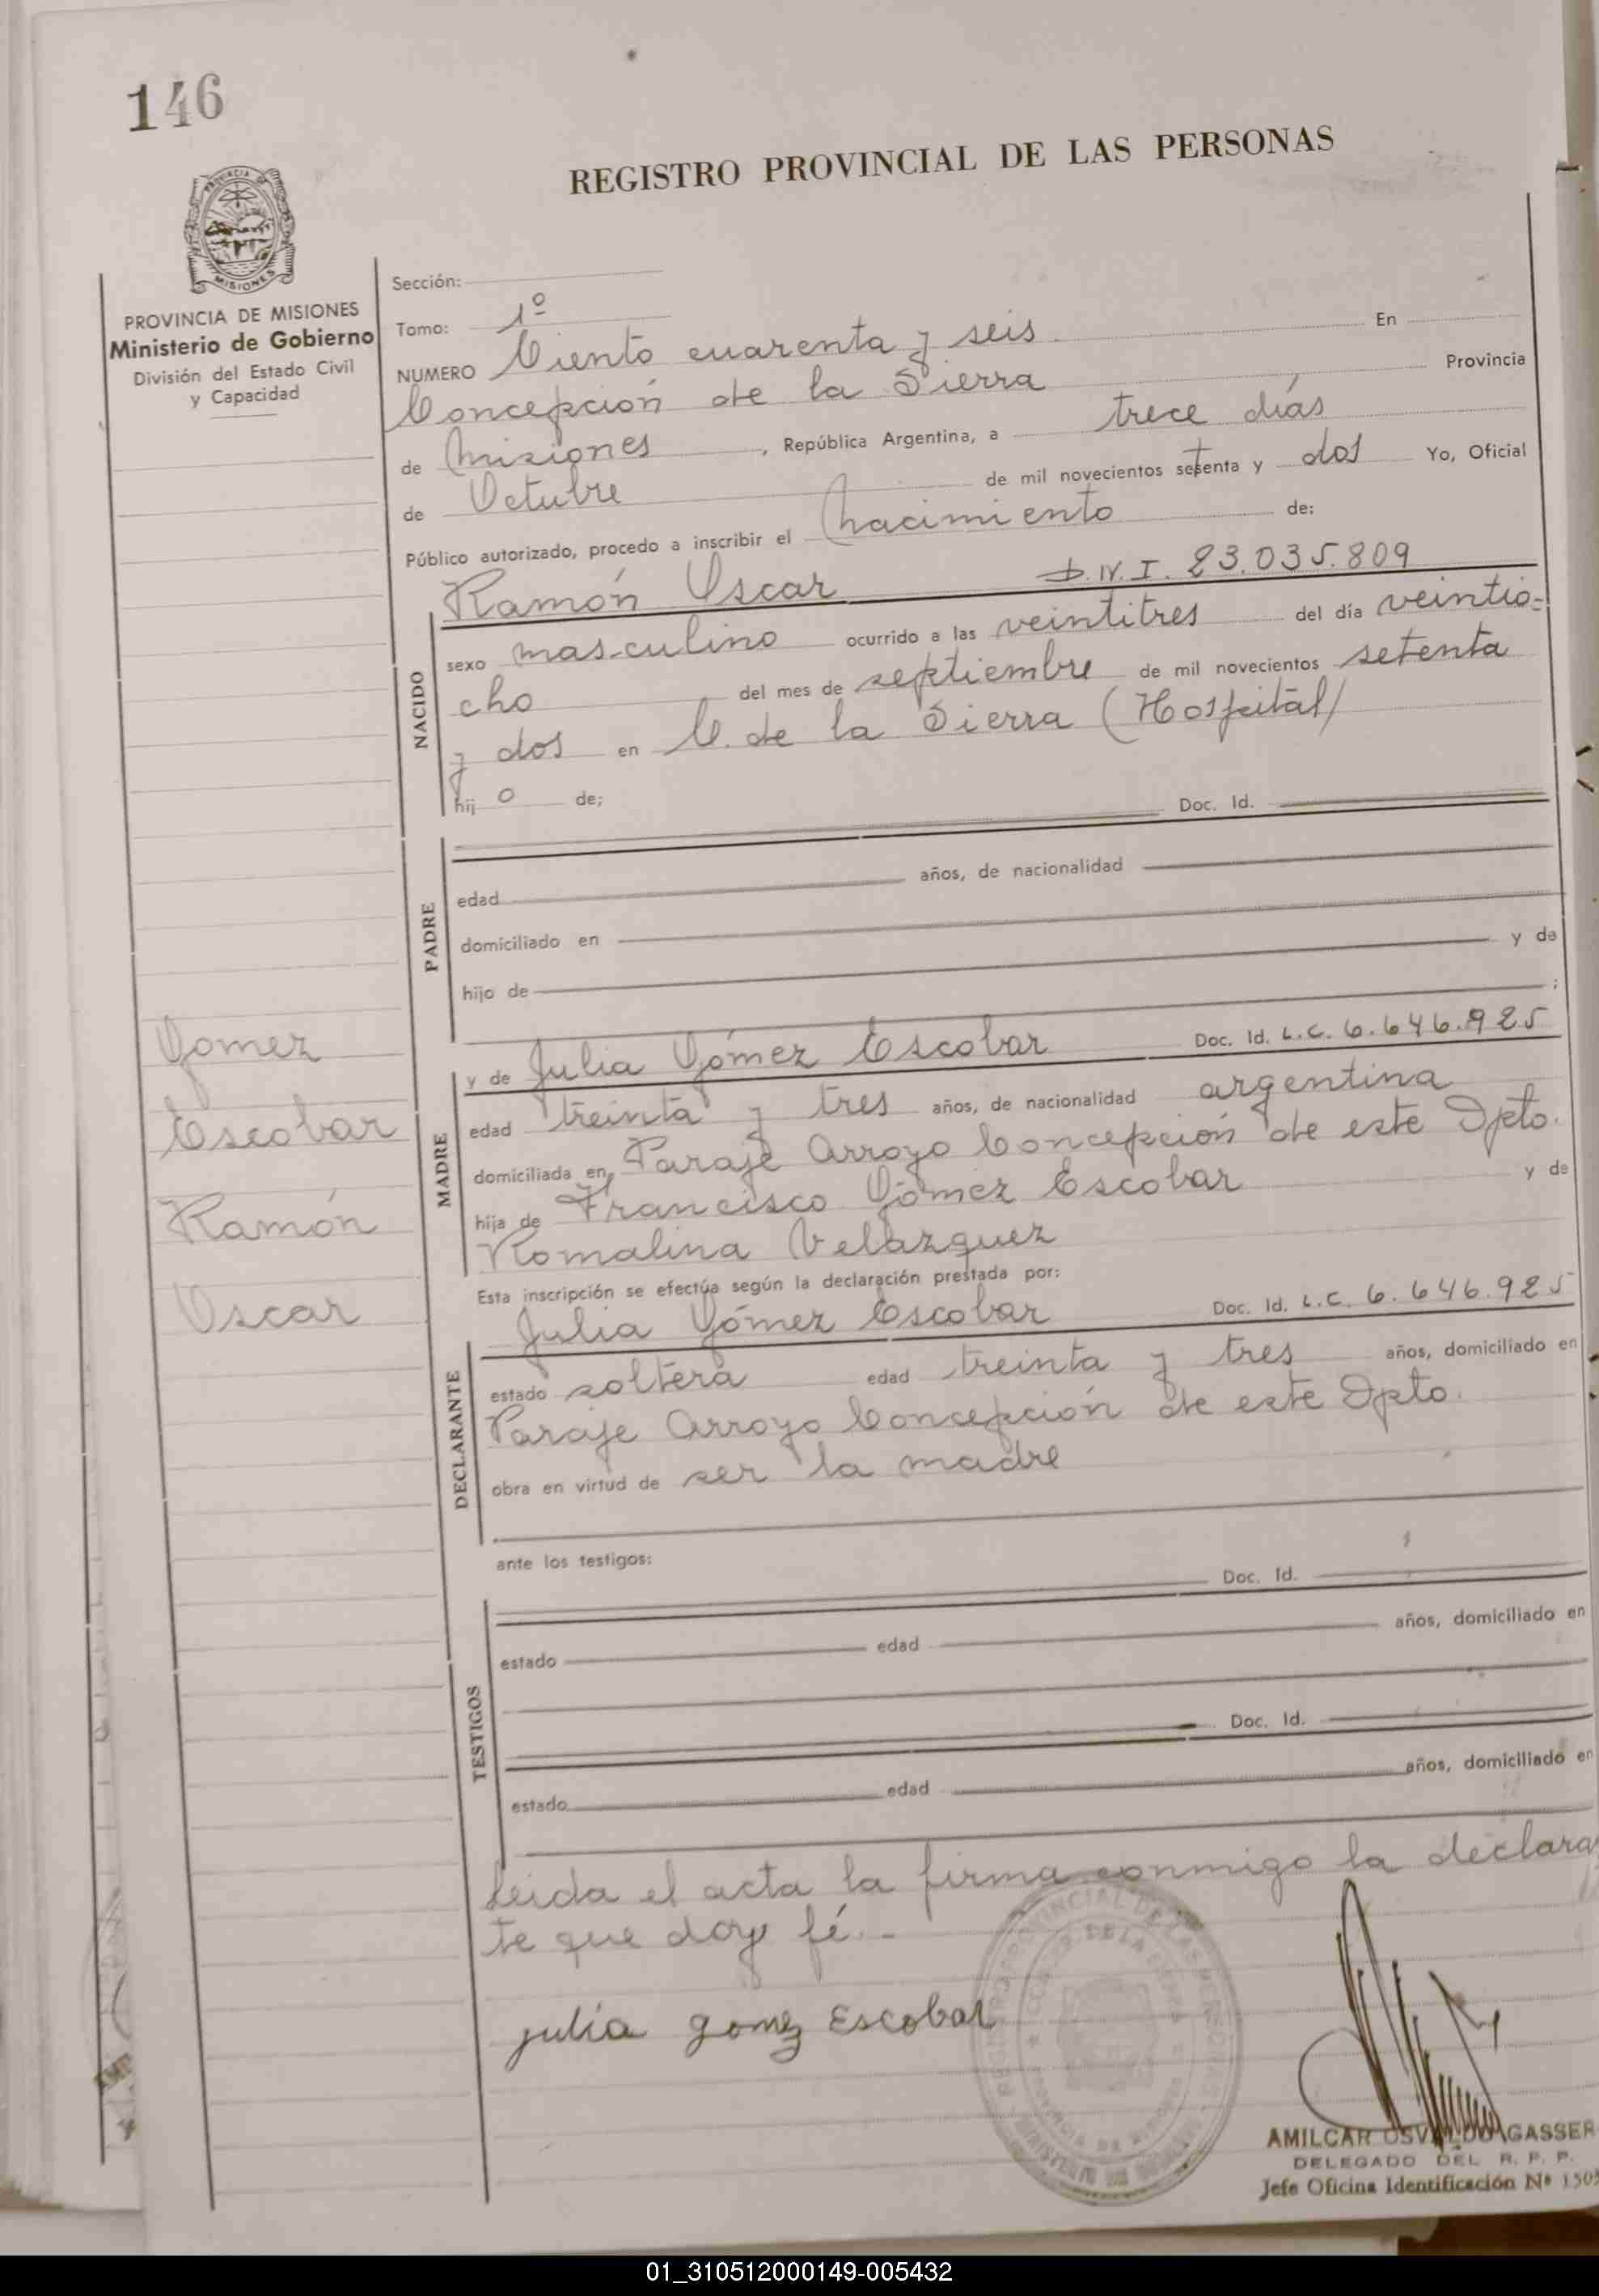 146
REGISTRO PROVINCIAL DE LAS PERSONAS
PROVINCIA DE MISIONES
Ministerio de Gobierno
División del Estado Civil
y Capacidad
Sección:
Tomo: 1º
NUMERO Ciento cuarenta y seis En
Concepción de la Sierra Provincia
de Misiones, República Argentina, a trece días
de Octubre de mil novecientos setenta y dos Yo, Oficial
Público autorizado, procedo a inscribir el Nacimiento de:
NACIDO
Ramón Oscar D.N.I. 23.035.809
sexo masculino ocurrido a las veintitres del día veintio-
cho del mes de septiembre de mil novecientos setenta
y dos en C. de la Sierra (Hospital)
hij o de;
Doc. Id.
PADRE
edad años, de nacionalidad
domiciliado en
hijo de y de
;
MADRE
y de Julia Gómez Escobar Doc. Id. L.C. 6.646.925
edad treinta y tres años, de nacionalidad argentina
domiciliada en Paraje Arroyo Concepción de este Dpto.
hija de Francisco Gómez Escobar y de
Romalina Velazquez
Esta inscripción se efectúa según la declaración prestada por:
DECLARANTE
Julia Gómez Escobar Doc. Id. L.C. 6.646.925
estado soltera edad treinta y tres años, domiciliado en
Paraje Arroyo Concepción de este Dpto.
obra en virtud de ser la madre
ante los testigos:
TESTIGOS
Doc. Id.
estado edad años, domiciliado en
Doc. Id.
estado edad años, domiciliado en
Leida el acta la firma conmigo la declara
te que doy fé.-
julia gomez Escobar
Gomez
Escobar
Ramón
Oscar
AMILCAR OSVALDO GASSER
DELEGADO DEL R. P. P.
Jefe Oficina Identificación Nº 1505
01_310512000149-005432